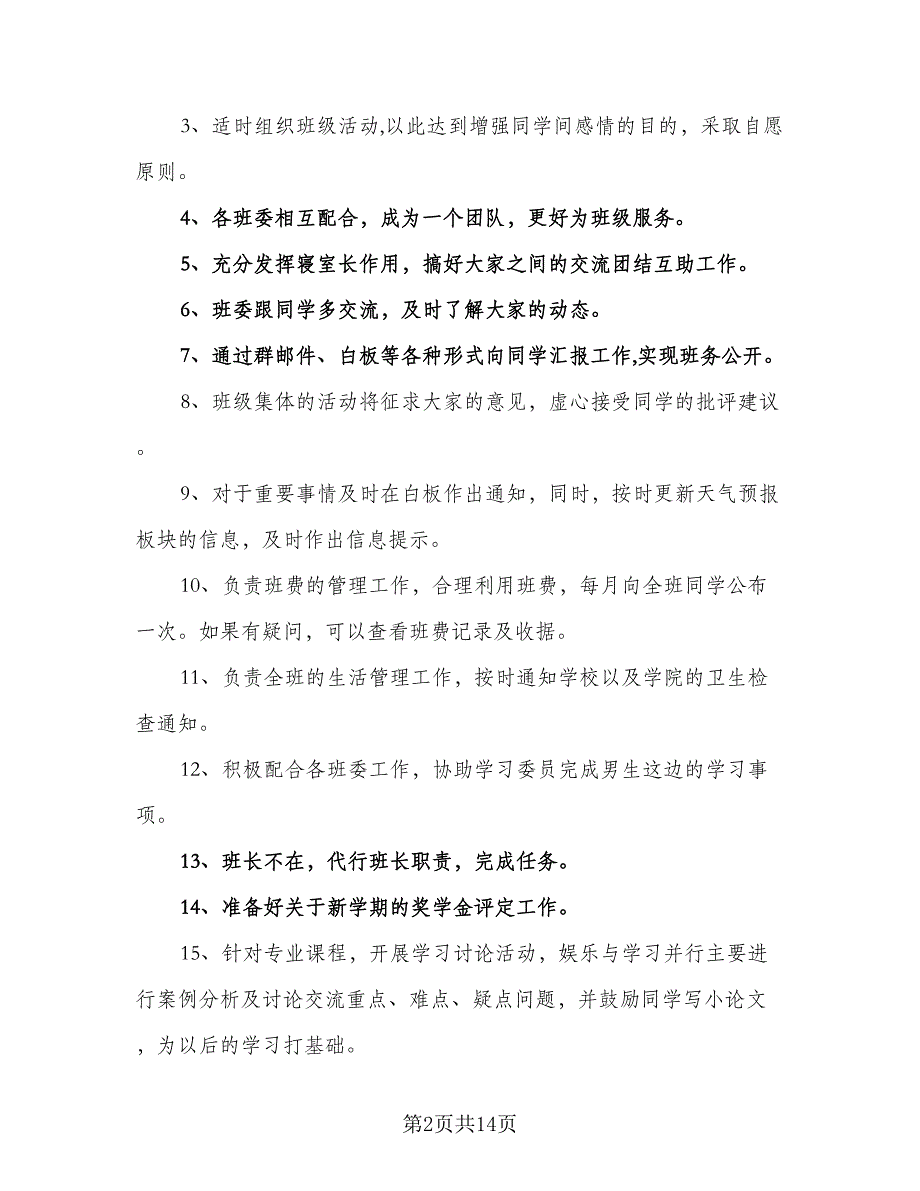 3、适时组织班级活动,以此达到增强同学间感情的目的，采取自愿
原则。
4、各班委相互配合，成为一个团队，更好为班级服务。
5、充分发挥寝室长作用，搞好大家之间的交流团结互助工作。
6、班委跟同学多交流，及时了解大家的动态。
7、通过群邮件、白板等各种形式向同学汇报工作,实现班务公开。
8、班级集体的活动将征求大家的意见，虚心接受同学的批评建议
。
9、对于重要事情及时在白板作出通知，同时，按时更新天气预报
板块的信息，及时作出信息提示。
10、负责班费的管理工作，合理利用班费，每月向全班同学公布
一次。如果有疑问，可以查看班费记录及收据。
11、负责全班的生活管理工作，按时通知学校以及学院的卫生检
查通知。
12、积极配合各班委工作，协助学习委员完成男生这边的学习事
项。
13、班长不在，代行班长职责，完成任务。
14、准备好关于新学期的奖学金评定工作。
15、针对专业课程，开展学习讨论活动，娱乐与学习并行主要进
行案例分析及讨论交流重点、难点、疑点问题，并鼓励同学写小论文
，为以后的学习打基础。
第2页共14页